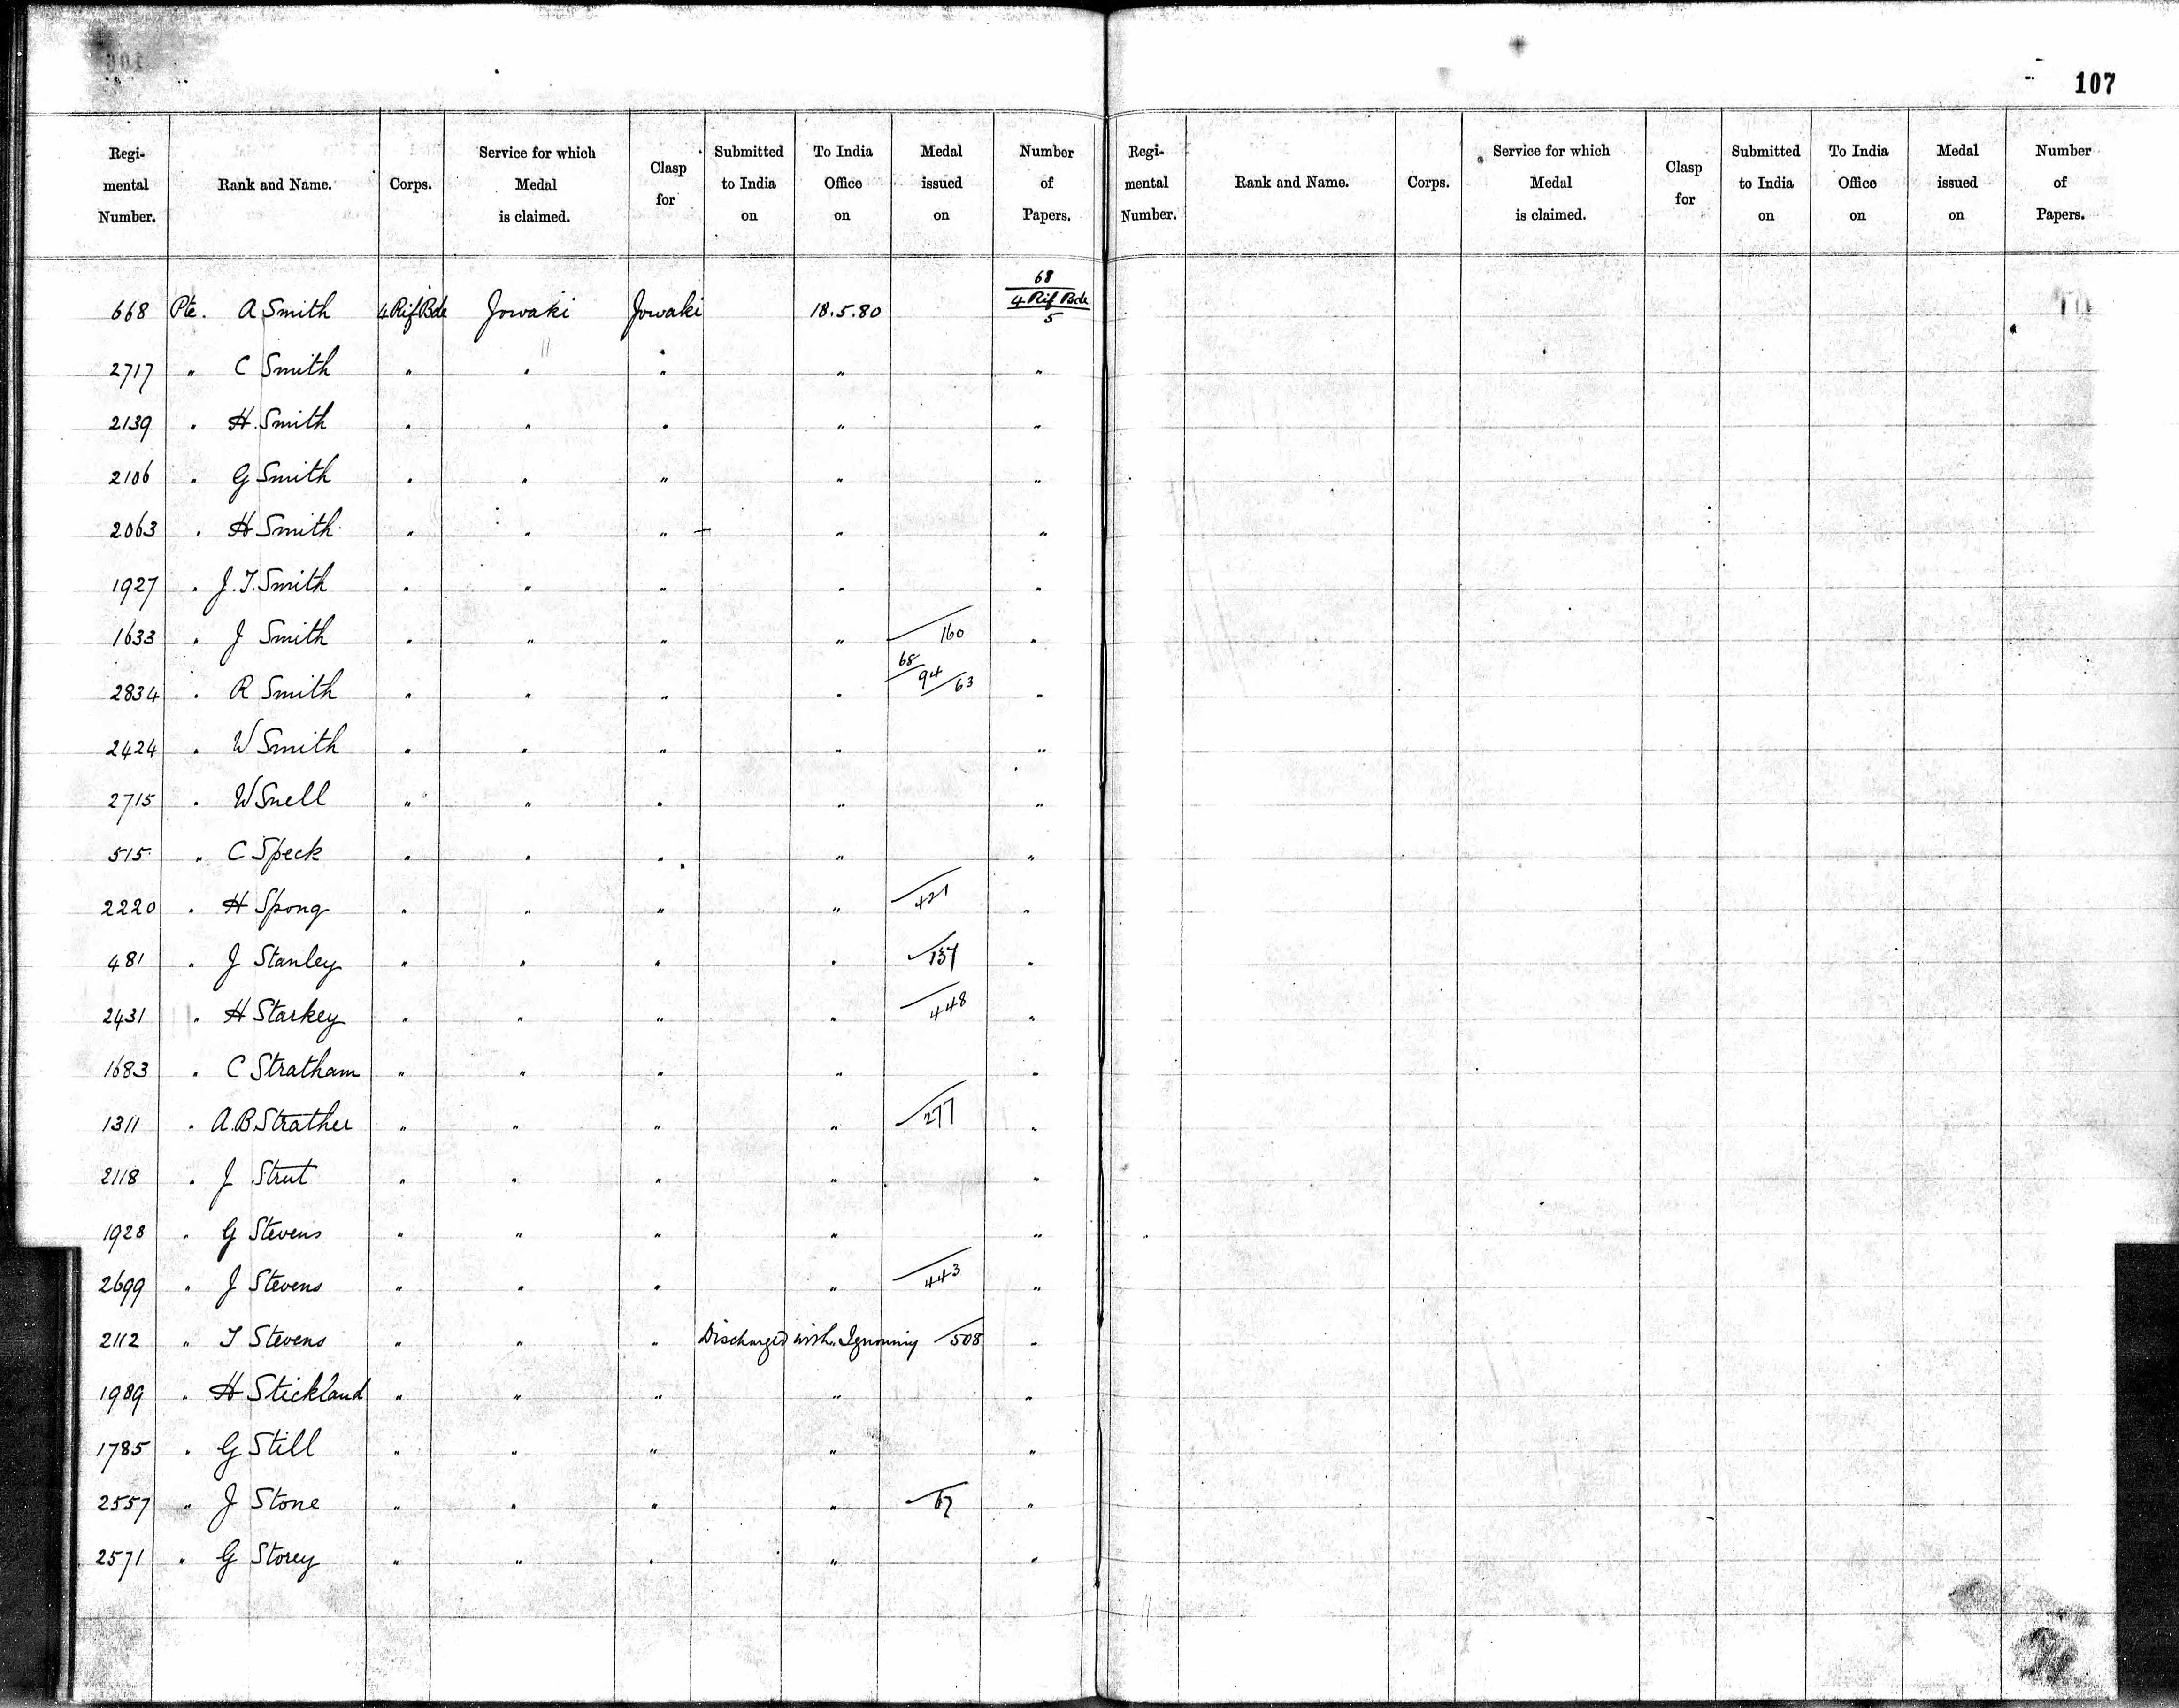 107
Regi- mental Number. Rank and Name. Corps. Service for which Medal is claimed. Clasp for Submitted to India on To India Office on Medal issued on Number of Papers. Regi- mental Number. Rank and Name. Corps. Service for which Medal is claimed. Clasp for Submitted to India on To India Office on Medal issued on Number of Papers.
668 Pte. A Smith 4 Rif Bde Jowaki Jowaki 18.5.80 68 / 4 Rif Bde / 5
2717 " C Smith " " " " "
2139 " H. Smith " " " " "
2106 " G Smith " " " " "
2063 " H Smith " " " " "
1927 " J. T. Smith " " " " "
1633 " J Smith " " " " /160 "
2834 " R Smith " " " " 68/94/63 "
2424 " W Smith " " " " "
2715 " W Snell " " " " "
515 " C Speck " " " " "
2220 " H Spong " " " " /421 "
481 " J Stanley " " " " /137 "
2431 " H Starkey " " " " /448 "
1683 " C Stratham " " " " "
1311 " A. B. Strather " " " " /277 "
2118 " J Strut " " " " "
1928 " G Stevens " " " " "
2699 " J Stevens " " " " /443 "
2112 " T Stevens " " " Discharged with " Ignominy /508 "
1989 " H Stickland " " " " "
1785 " G Still " " " " "
2557 " J Stone " " " " /67 "
2571 " G Storey " " " " "